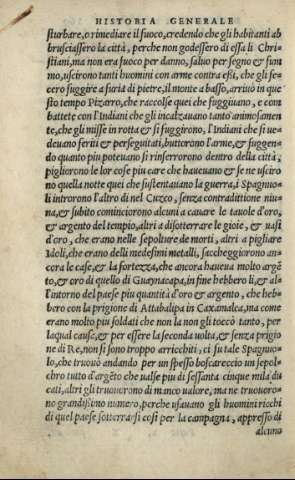 HISTORIA GENERALE
sturbare, o rimediare il fuoco, credendo che gli habitanti ab
brusciassero la città, perche non godessero di essa li Chri-
stiani, ma non era fuoco per danno, saluo per segno & fum
mo, uscirono tanti huomini con arme contra essi, che gli fe-
cero fuggire a furia di pietre, il monte a basso, arriuò in que
sto tempo Pizarro, che raccolse quei che fuggiuano, e com
battete con l'Indiani che gl'incalzauano tanto animosamen
te, che gli misse in rotta & si fuggirono, l'Indiani che si ue-
deuano feriti & perseguitati, buttorono l'arme, & fuggen-
do quanto piu poteuano si rinserrorono dentro della città,
piglioreno le lor cose piu care che haueuano & se ne uscirо
no quella notte quei che sustentauano la guerra, i Spagnuo-
li introrono l'altro di nel Cuzco, senza contradittione niu-
na, & subito cominciorono alcuni a cauare le tauole d'oro,
& argento del tempio, altri a disotterrare le gioie, & uasi
d'oro, che erano nelle sepolture de morti, altri a pigliare
Idoli, che erano delli medesimi metalli, saccheggiorono an-
cora le case, & la fortezza, che ancora haueua molto argē
to, & oro di quello di Guaynacapa, in fine hebbero li, & al
l'intorno del paese piu quantità d'oro & argento, che heb-
bero con la prigione di Attabalipa in Caxamalca, ma come
erano molto piu soldati che non la non gli toccò tanto, per
laqual causa, & per essere la seconda uolta, & senza prigio
ne di Re, non si sono troppo arricchiti, ci fu tale Spagnuo-
lo, che trouò andando per un spesso boscareccio un sepol-
chro tutto d'argēto che ualse piu di sessanta cinque mila du
cati, altri gli truouorono di manco ualore, ma ne truouoro-
no grandissimo numero, perche usauano gli huomini ricchi
di quel paese sotterrarsi cosi per la campagna, appresso di
alcuno